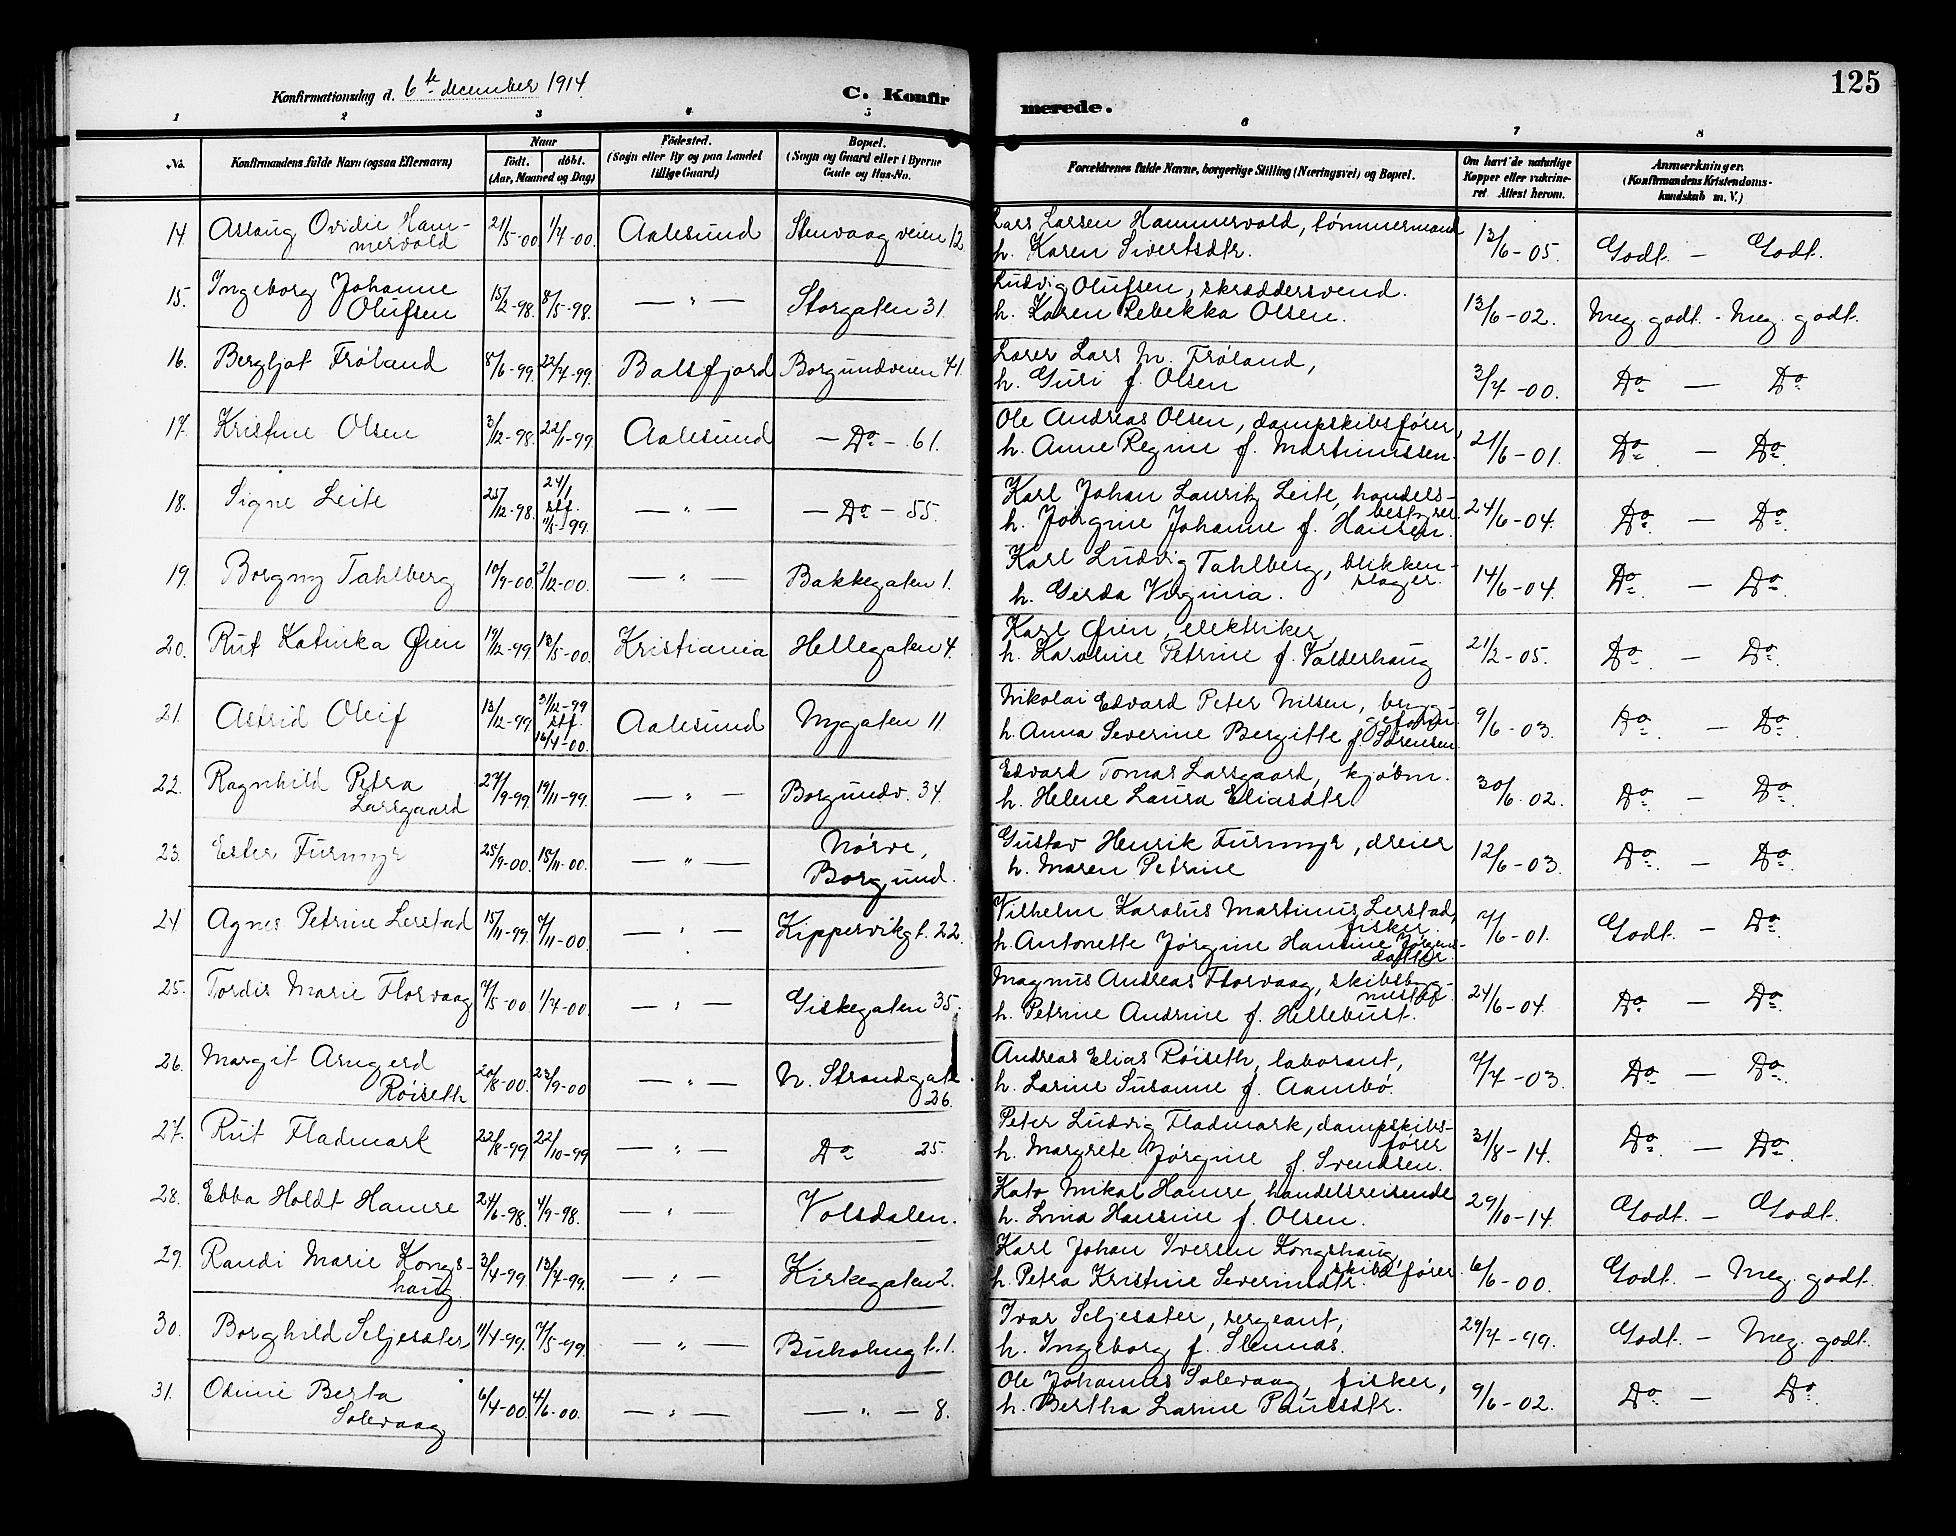 Konfirmationsdag d. 6te december 1914
C. Konfirmerede.
125
1 2 3 4 5 6 7 8
No. Konfirmandens fulde Navn (ogsaa Efternavn) Naar født. døbt. (Aar, Maaned og Dag) Fødested. (Sogn eller By og paa Landet tillige Gaard) Bopæl. (Sogn og Gaard eller i Byerne Gade og Hus-No. Forældrenes fulde Navne, borgerlige Stilling (Næringsvei) og Bopæl. Om havt de naturlige Kopper eller vaksineret. Attest herom. Anmærkninger. (Konfirmandens Kristendomskundskab m. V.)
14. Aslaug Ovidie Hammervold 21/5-00 1/7-00. Aalesund Stenvaagveien 12 Lars Larsen Hammervold, tømmermand h. Karen Sivertsdtr. 13/6-05. Godt. — Godt.
15. Ingeborg Johanne Olufsen 15/2-98. 8/5-98. — " — Storgaten 31. Ludvig Olufsen, skræddersvend. h. Karen Rebekka Olsen. 13/6-02. Meg. godt. - Meg. godt.
16. Bergljot Frøland 8/6-99. 23/7-99. Balsfjord Borgundveien 41. Lærer Lars M. Frøland, h. Guri f. Olsen 3/7-00. Do — Do
17. Kristine Olsen 3/12-98. 22/1-99. Aalesund — Do — 61. Ole Andreas Olsen, dampskibsfører, h. Anne Regine f. Martinussen. 21/6-01. Do — Do
18. Signe Leite 25/12-98. 24/1 stf. 11/5-99. — " — — Do — 55. Karl Johan Lauritz Leite, handelsbestyrer h. Jørgine Johanne f. Hansen. 24/6-04. Do — Do
19. Borgny Tahlberg 10/9-00. 2/12-00. — " — Bakkegaten 1. Karl Ludvig Tahlberg, blikkenslager. h. Gerda Virginia. 14/6-04. Do — Do
20. Rut Katinka Øien 19/12-99. 13/5-00. Kristiania Hellegaten 4. Karl Øien, elektriker, h. Karoline Petrine f. Valderhaug 21/2-05. Do — Do
21. Astrid Oleif 13/12-99. 31/12-99 stf. 16/4-00. Aalesund Nygaten 11. Nikolai Edvard Peter Nilsen, h. Anna Severine Bergitte f. Sørensen 9/6-03. Do — Do
22. Ragnhild Petra Larsgaard 27/9-99. 19/11-99. — " — Borgundv. 34. Edvard Tomas Larsgaard, kjøbm. h. Helene Laura Eliasdtr 30/6-02. Do — Do
23. Ester Furmyr 25/9-00. 15/11-00. — " — Nørve, Borgund. Gustav Henrik Furmyr, dreier h. Maren Petrine 12/6-03. Do — Do
24. Agnes Petrine Lerstad 15/11-99. 7/11-00. — " — Kippervikgt. 22. Vilhelm Karolus Martinus Lerstad, fisker. h. Antonette Jørgine Hansine Jørgensdatter. 7/6-01. Godt — Do
25. Tordis Marie Florvaag 7/5-00 1/7-00. — " — Giskegaten 35. Magnus Andreas Florvaag, h. Petrine Andrine f. Hellebust. 24/6-04. Do — Do
26. Margit Arngerd Røiseth 20/8-00. 23/9-00 — " — N. Strandgate 26. Andreas Elias Røiseth, laborant, h. Larine Susanne f. Aambø. 7/7-03. Do — Do
27. Rut Fladmark 22/8-99. 22/10-99 — " — Do 25. Peter Ludvig Fladmark, dampskibsfører h. Margrete Jørgine f. Svendsen. 31/8-14. Do — Do
28. Ebba Holdt Hamre 24/6-98. 4/9-98. — " — Volsdalen. Kato Mikal Hamre, handelsreisende h. Lina Hansine f. Olsen. 29/10-14. Godt. — Godt.
29. Randi Marie Kongshaug 3/4-99. 13/7-99. — " — Kirkegaten 2. Karl Johan Iversen Kongshaug, skibsfører h. Petra Kristine Severinsdtr. 6/6-00. Godt — Meg. godt.
30. Borghild Seljesæter 11/4-99. 7/5-99 — " — Buholmgt. 1. Ivar Seljesæter, sergeant, h. Ingeborg f. Stennæs. 29/7-99. Godt — Meg. godt.
31. Odine Berta Solevaag 6/4-00. 4/6-00. — " — — " — 8. Ole Johannes Solevaag, fisker, h. Bertha Larine Paulsdtr. 9/6-02. Do — Do